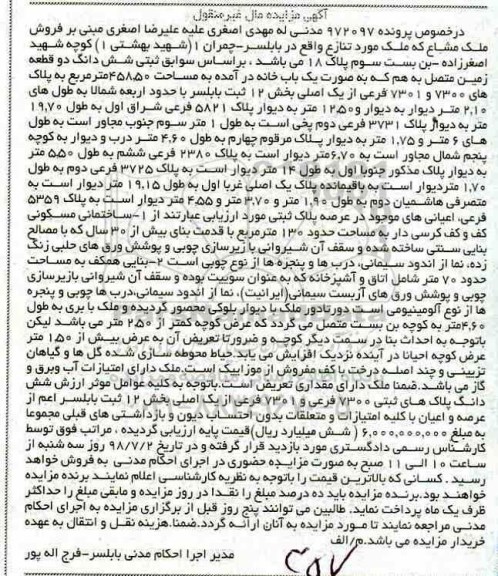 آگهی مزایده مال غیرمنقول
درخصوص پرونده ۹۷۲۰۹۷ مدنی له مهدی اصغری علیه علیرضا اصغری مبنی بر فروش
ملک مشاع که ملک مورد تنازع واقع در بابلسر-چمران ۱(شهید بهشتی ۱) کوچه شهید
اصغرزاده -بن بست سوم پلاک ۱۸ می باشد ، براساس سوابق ثبتی شش دانگ دو قطعه
زمین متصل به هم که به صورت یک باب خانه در آمده به مساحت ۴۵۸۵۰مترمربع به پلاک
های ۷۳۰۰ و ۷۳۰۱ فرعی از یک اصلی بخش ۱۲ ثبت بابلسر با حدود اربعه شمالا به طول های
۲,۱۰ متر دیوار به دیوار و۱۲,۵۰ متر به دیوار پلاک ۵۸۲۱ فرعی شراق اول به طول ۱۹,۷۰
متر به دیوار پلاک ۳۷۳۱ فرعی دوم پخی است به طول ۱ متر سوم جنوب مجاور است به طول
های ۶ متر و ۱,۷۵ متر به دیوار پلاک مرقوم چهارم به طول ۴,۶۰ متر درب و دیوار به کوچه
پنجم شمال مجاور است به ۶,۷۰متر دیوار است به پلاک ۲۳۸۰ فرعی ششم به طول ۵,۵۰ متر
به دیوار پلاک مذکور جنوبا اول به طول ۱۴ متر دیوار است به پلاک ۳۷۲۵ فرعی دوم به طول
۱,۷۰ متردیوار است به باقیمانده پلاک یک اصلی غربا اول به طول ۱۹,۱۵ متر دیوار است به
متصرفی هاشمیان دوم به طول ۱,۹۰ متر و ۳,۷۰ متر و ۴,۵۵ متر دیوار است به پلاک ۵۳۵۹
فرعی، اعیانی های موجود در عرصه پلاک ثبتی مورد ارزیابی عبارتند از ۱-ساختمانی مسکونی
کف و کف کرسی دار به مساحت حدود ۱۳۰ مترمربع با قدمت بنای بیش از ۳۰ سال که با مصالح
بنایی سنتی ساخته شده و سقف آن شیروانی با زیرسازی چوبی و پوشش ورق های حلبی زنگ
زده، نما از اندود سیمانی، درب ها و پنجره ها از نوع چوبی است ۲-بنایی همکف به مساحت
حدود ۷۰ متر شامل اتاق و آشپزخانه که به عنوان سوییت بوده و سقف آن شیروانی بازیرسازی
چوبی و پوشش ورق های آزبست سیمانی(ایرانیت)، نما از اندود سیمانی،درب ها چوبی و پنجره
ها از نوع آلومینیومی است، دورتادور ملک با دیوار بلوکی محصور گردیده و ملک با بری به طول
۴,۶۰متر به کوچه بن بست متصل می گردد که عرض کوچه کمتر از ۲,۵۰ متر می باشد لیکن
باتوجه به احداث بنا در سمت دیگر کوچه و ضرورتا تعریض آن به عرض بیش از ۱,۵۰ متر
عرض کوچه احیانا در آینده نزدیک افزایش می یابد.حیاط محوطه سازی شده گل ها و گیاهان
تزیینی و چند اصله درخت با کف مفروش از موزاییک است.ملک دارای امتیازات آب وبرق و
گاز می باشد.ضمنا ملک دارای مقداری تعریض است.باتوجه به کلیه عوامل موثر ارزش شش
دانگ پلاک های ثبتی ۷۳۰۰ فرعی و۷۳۰۱ فرعی از یک اصلی بخش ۱۲ ثبت بابلسر اعم از
عرصه و اعیان با کلیه امتیازات و متعلقات بدون احتساب دیون و بازداشتی های قبلی مجموعا
به مبلغ ۶,۰۰۰,۰۰۰,۰۰۰ ( شش میلیارد ریال)قیمت پایه ارزیابی گردیده ، مراتب فوق توسط
کارشناس رسمی دادگستری مورد بازدید قرار گرفته و در تاریخ ۹۸/۷/۲ روز سه شنبه از
ساعت ۱۰ الی ۱۱ صبح به صورت مزایده حضوری در اجرای احکام مدنی به فروش خواهد
رسید . کسانی که بالاترین قیمت را باتوجه به نظریه کارشناسی اعلام نمایند برنده مزایده
خواهند بود.برنده مزایده باید ده درصد مبلغ را نقدا در روز مزایده و مابقی مبلغ را حداکثر
ظرف یک ماه پرداخت نماید. طالبین می توانند پنج روز قبل از برگزاری مزایده به اجرای احکام
مدنی مراجعه نمایند تا مورد مزایده به آنان ارائه گردد.ضمنا.هزینه نقل و انتقال به عهده
خریدار مزایده می باشد.م/الف
مدیر اجرا احکام مدنی بابلسر-فرج اله پور